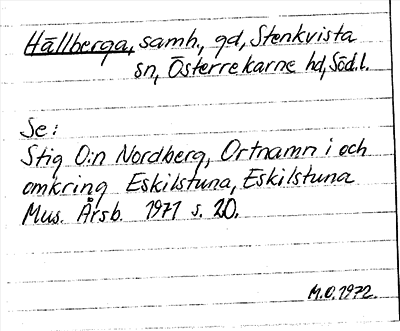 Hällberga, samh., gd, Stenkvista
sn, Österrekarne hd, Södl.
Se:
Stig O:n Nordberg, Ortnamn i och
omkring Eskilstuna, Eskilstuna
Mus. Årsb. 1971 s. 20.
M.O. 1972.